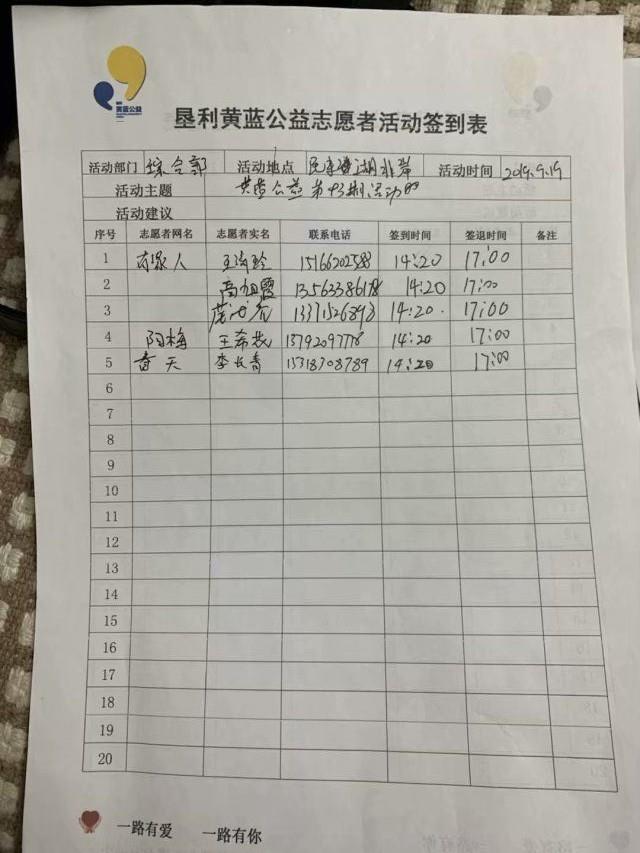 黄蓝公益
垦利黄蓝公益志愿者活动签到表
活动部门 综合部 活动地点 民丰湖北岸 活动时间 2019.9.19
活动主题 黄蓝公益第43期活动
活动建议
序号 志愿者网名 志愿者实名 联系电话 签到时间 签退时间 备注
1 15166202588 14:20 17:00
2 高旭霞 13563386178 14:20 17:00
3 13371526898 14:20 17:00
4 阳梅 王希 13792097778 14:20 17:00
5 春天 李长青 15318708789 14:20 17:00
6
7
8
9
10
11
12
13
14
15
16
17
18
19
20
一路有爱 一路有你